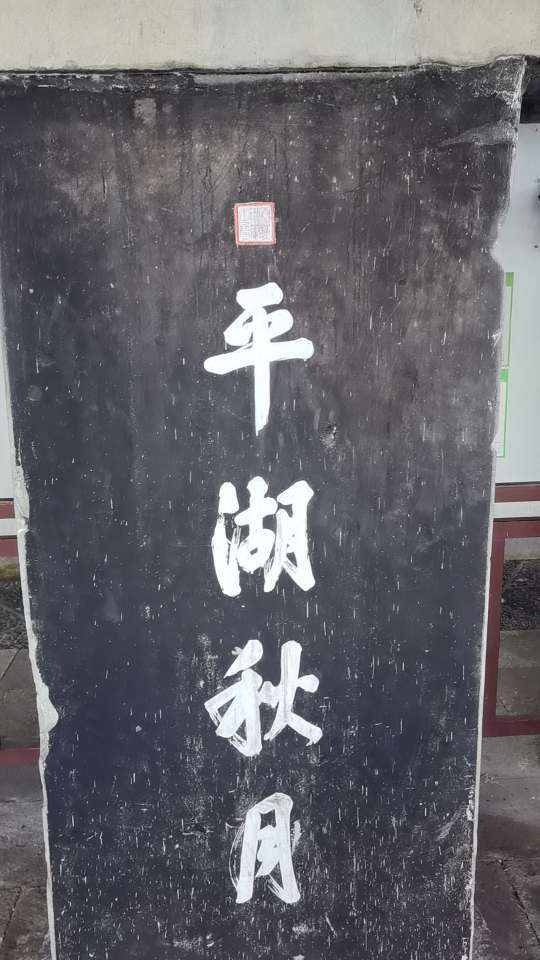 平湖秋月